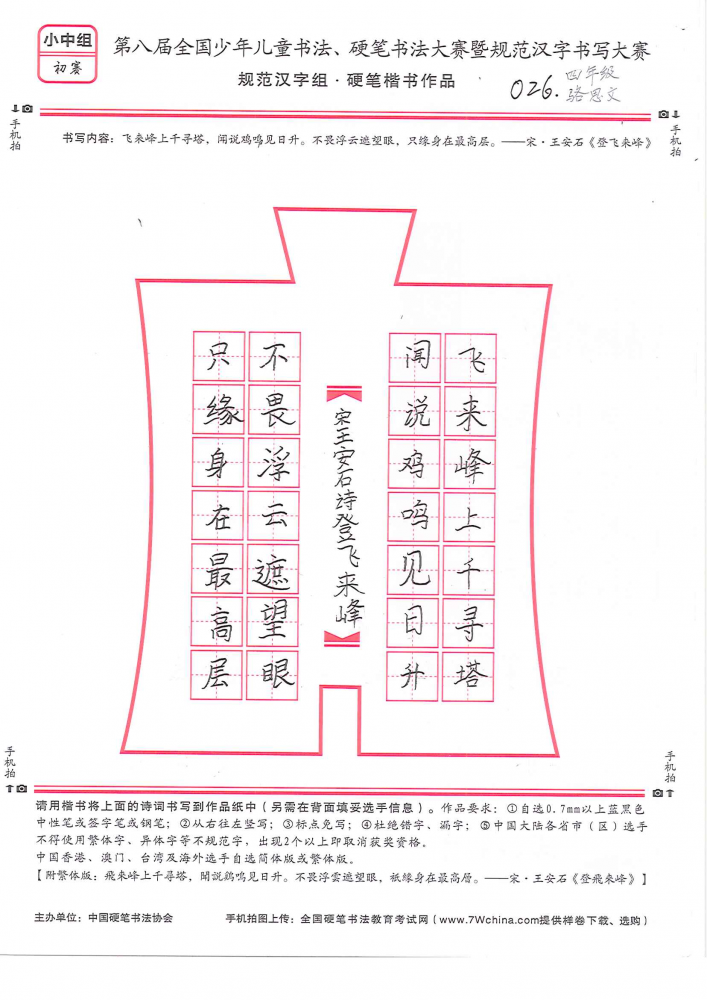 小中组
初赛
第八届全国少年儿童书法、硬笔书法大赛暨规范汉字书写大赛
规范汉字组·硬笔楷书作品
026.
四年级
骆思文
手机拍
手机拍
书写内容：飞来峰上千寻塔，闻说鸡鸣见日升。不畏浮云遮望眼，只缘身在最高层。——宋·王安石《登飞来峰》
飞来峰上千寻塔
闻说鸡鸣见日升
宋王安石诗登飞来峰
不畏浮云遮望眼
只缘身在最高层
手机拍
手机拍
请用楷书将上面的诗词书写到作品纸中（另需在背面填妥选手信息）。作品要求：①自选0.7mm以上蓝黑色
中性笔或签字笔或钢笔；②从右往左竖写；③标点免写；④杜绝错字、漏字；⑤中国大陆各省市（区）选手
不得使用繁体字、异体字等不规范字，出现2个以上即取消获奖资格。
中国香港、澳门、台湾及海外选手自选简体版或繁体版。
【附繁体版：飛來峰上千尋塔，聞說鷄鳴見日升。不畏浮雲遮望眼，祇緣身在最高層。——宋·王安石《登飛來峰》】
主办单位：中国硬笔书法协会
手机拍图上传：全国硬笔书法教育考试网（www.7Wchina.com提供样卷下载、选购）